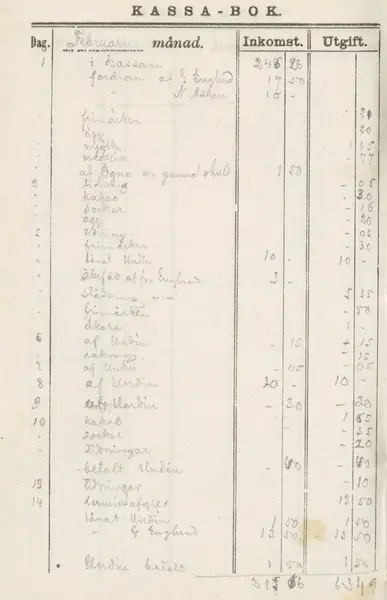 KASSA-BOK.
Dag. Februari månad. Inkomst. Utgift.
1 i kassan 246 26
fordran af E Englund 17 50
" N Askan 10 -
frimärken 20
ägg 20
mjölk 1 05
medicin 77
af Ögren en gammal skuld 1 50
2 tidning - 05
kakao 30
socker - 16
ägg - 20
5 tidning - 02
frimärken - 30
lånat Undin 10 - 10 -
återfåt af fru Englund 2 -
städning 5 25
frimärken - 50
skora 1 -
6 af Undin - 15 + 15
rakning - 15
7 af Undin - 05 - 05
8 af Nordin 20 - 10 -
9 Nordin - 30 - 20
10 kakao 1 65
socker - 35
tidningar - 20
betalt Undin - 40 - 40
13 tidningar - 10
14 terminsafgift 13 50
lånat Undin 1 50 1 50
" E Englund 13 50 13 50
Undin betalt 1 50 1 50
315 66 63 49